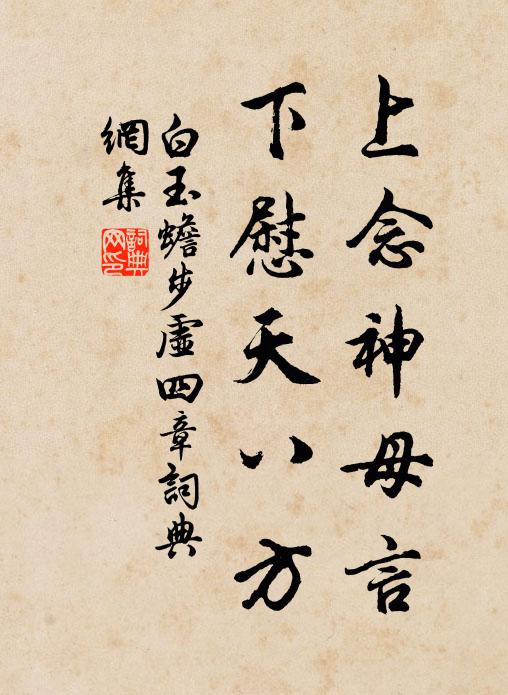 上念神母言
下慰天八方
白玉蟾步虛四章詞典
網集
詞典網印